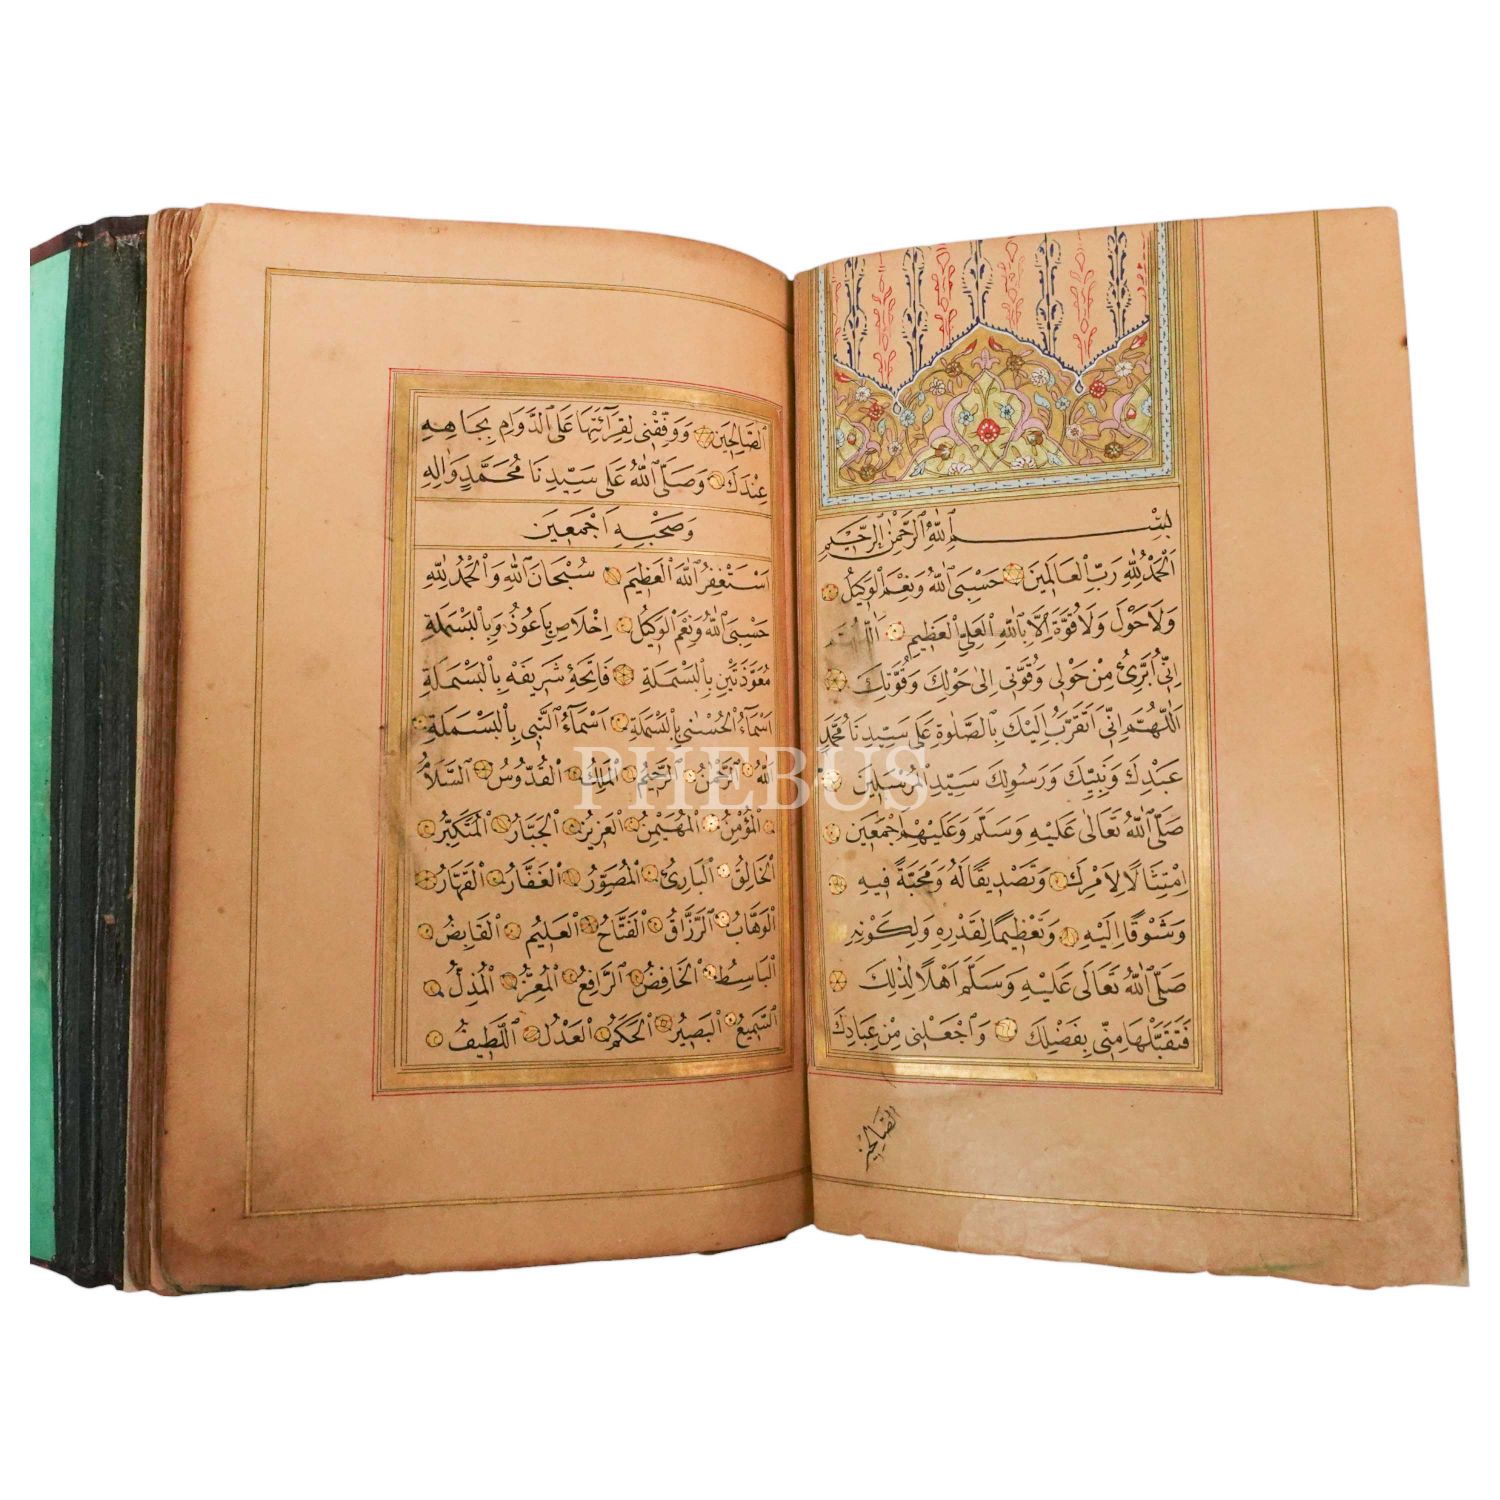 بِسْمِ اللّٰهِ الرَّحْمٰنِ الرَّحِيمِ
اَلْحَمْدُ لِلّٰهِ رَبِّ الْعَالَمِينَ حَسْبِيَ اللّٰهُ وَنِعْمَ الْوَكِيلُ
وَلَا حَوْلَ وَلَا قُوَّةَ اِلَّا بِاللّٰهِ الْعَلِيِّ الْعَظِيمِ اَللّٰهُمَّ
اِنِّي اُبَرِّئُ مِنْ حَوْلِي وَقُوَّتِي اِلٰى حَوْلِكَ وَقُوَّتِكَ
اَللّٰهُمَّ اِنِّي اَتَقَرَّبُ اِلَيْكَ بِالصَّلٰوةِ عَلٰى سَيِّدِنَا مُحَمَّدٍ
عَبْدِكَ وَنَبِيِّكَ وَرَسُولِكَ سَيِّدِ الْمُرْسَلِينَ
صَلَّى اللّٰهُ تَعَالٰى عَلَيْهِ وَسَلَّمَ وَعَلَيْهِمْ اَجْمَعِينَ
اِمْتِثَالًا لِاَمْرِكَ وَتَصْدِيقًا لَهُ وَمَحَبَّةً فِيهِ
وَشَوْقًا اِلَيْهِ وَتَعْظِيمًا لِقَدْرِهِ وَلِكَوْنِهِ
صَلَّى اللّٰهُ تَعَالٰى عَلَيْهِ وَسَلَّمَ اَهْلًا لِذٰلِكَ
فَتَقَبَّلْهَا مِنِّي بِفَضْلِكَ وَاجْعَلْنِي مِنْ عِبَادِكَ
الصَّالِحِينَ
الصَّالِحِينَ وَوَفِّقْنِي لِقِرَآئَتِهَا عَلَى الدَّوَامِ بِجَاهِهِ
عِنْدَكَ وَصَلَّى اللّٰهُ عَلٰى سَيِّدِنَا مُحَمَّدٍ وَاٰلِهِ
وَصَحْبِهِ اَجْمَعِينَ
اَسْتَغْفِرُ اللّٰهَ الْعَظِيمَ سُبْحَانَ اللّٰهِ وَالْحَمْدُ لِلّٰهِ
حَسْبِيَ اللّٰهُ وَنِعْمَ الْوَكِيلُ اِخْلَاصِ بَاعُوذُ وَبِالْبَسْمَلَةِ
مُعَوَّذَتَيْنِ بِالْبَسْمَلَةِ فَاتِحَۀِ شَرِيفَهْ بِالْبَسْمَلَةِ
اَسْمَاءُ الْحُسْنٰى بِالْبَسْمَلَةِ اَسْمَاءُ النَّبِي بِالْبَسْمَلَةِ
اَللّٰهُ الرَّحْمٰنُ الرَّحِيمُ الْمَلِكُ الْقُدُّوسُ السَّلَامُ
الْمُؤْمِنُ الْمُهَيْمِنُ الْعَزِيزُ الْجَبَّارُ الْمُتَكَبِّرُ
الْخَالِقُ الْبَارِئُ الْمُصَوِّرُ الْغَفَّارُ الْقَهَّارُ
الْوَهَّابُ الرَّزَّاقُ الْفَتَّاحُ الْعَلِيمُ الْقَابِضُ
الْبَاسِطُ الْخَافِضُ الرَّافِعُ الْمُعِزُّ الْمُذِلُّ
السَّمِيعُ الْبَصِيرُ الْحَكَمُ الْعَدْلُ اللَّطِيفُ
PHEBUS